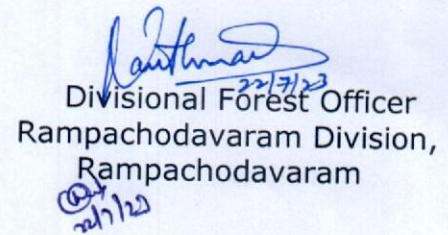 22/7/23
Divisional Forest Officer
Rampachodavaram Division,
Rampachodavaram
22/7/23